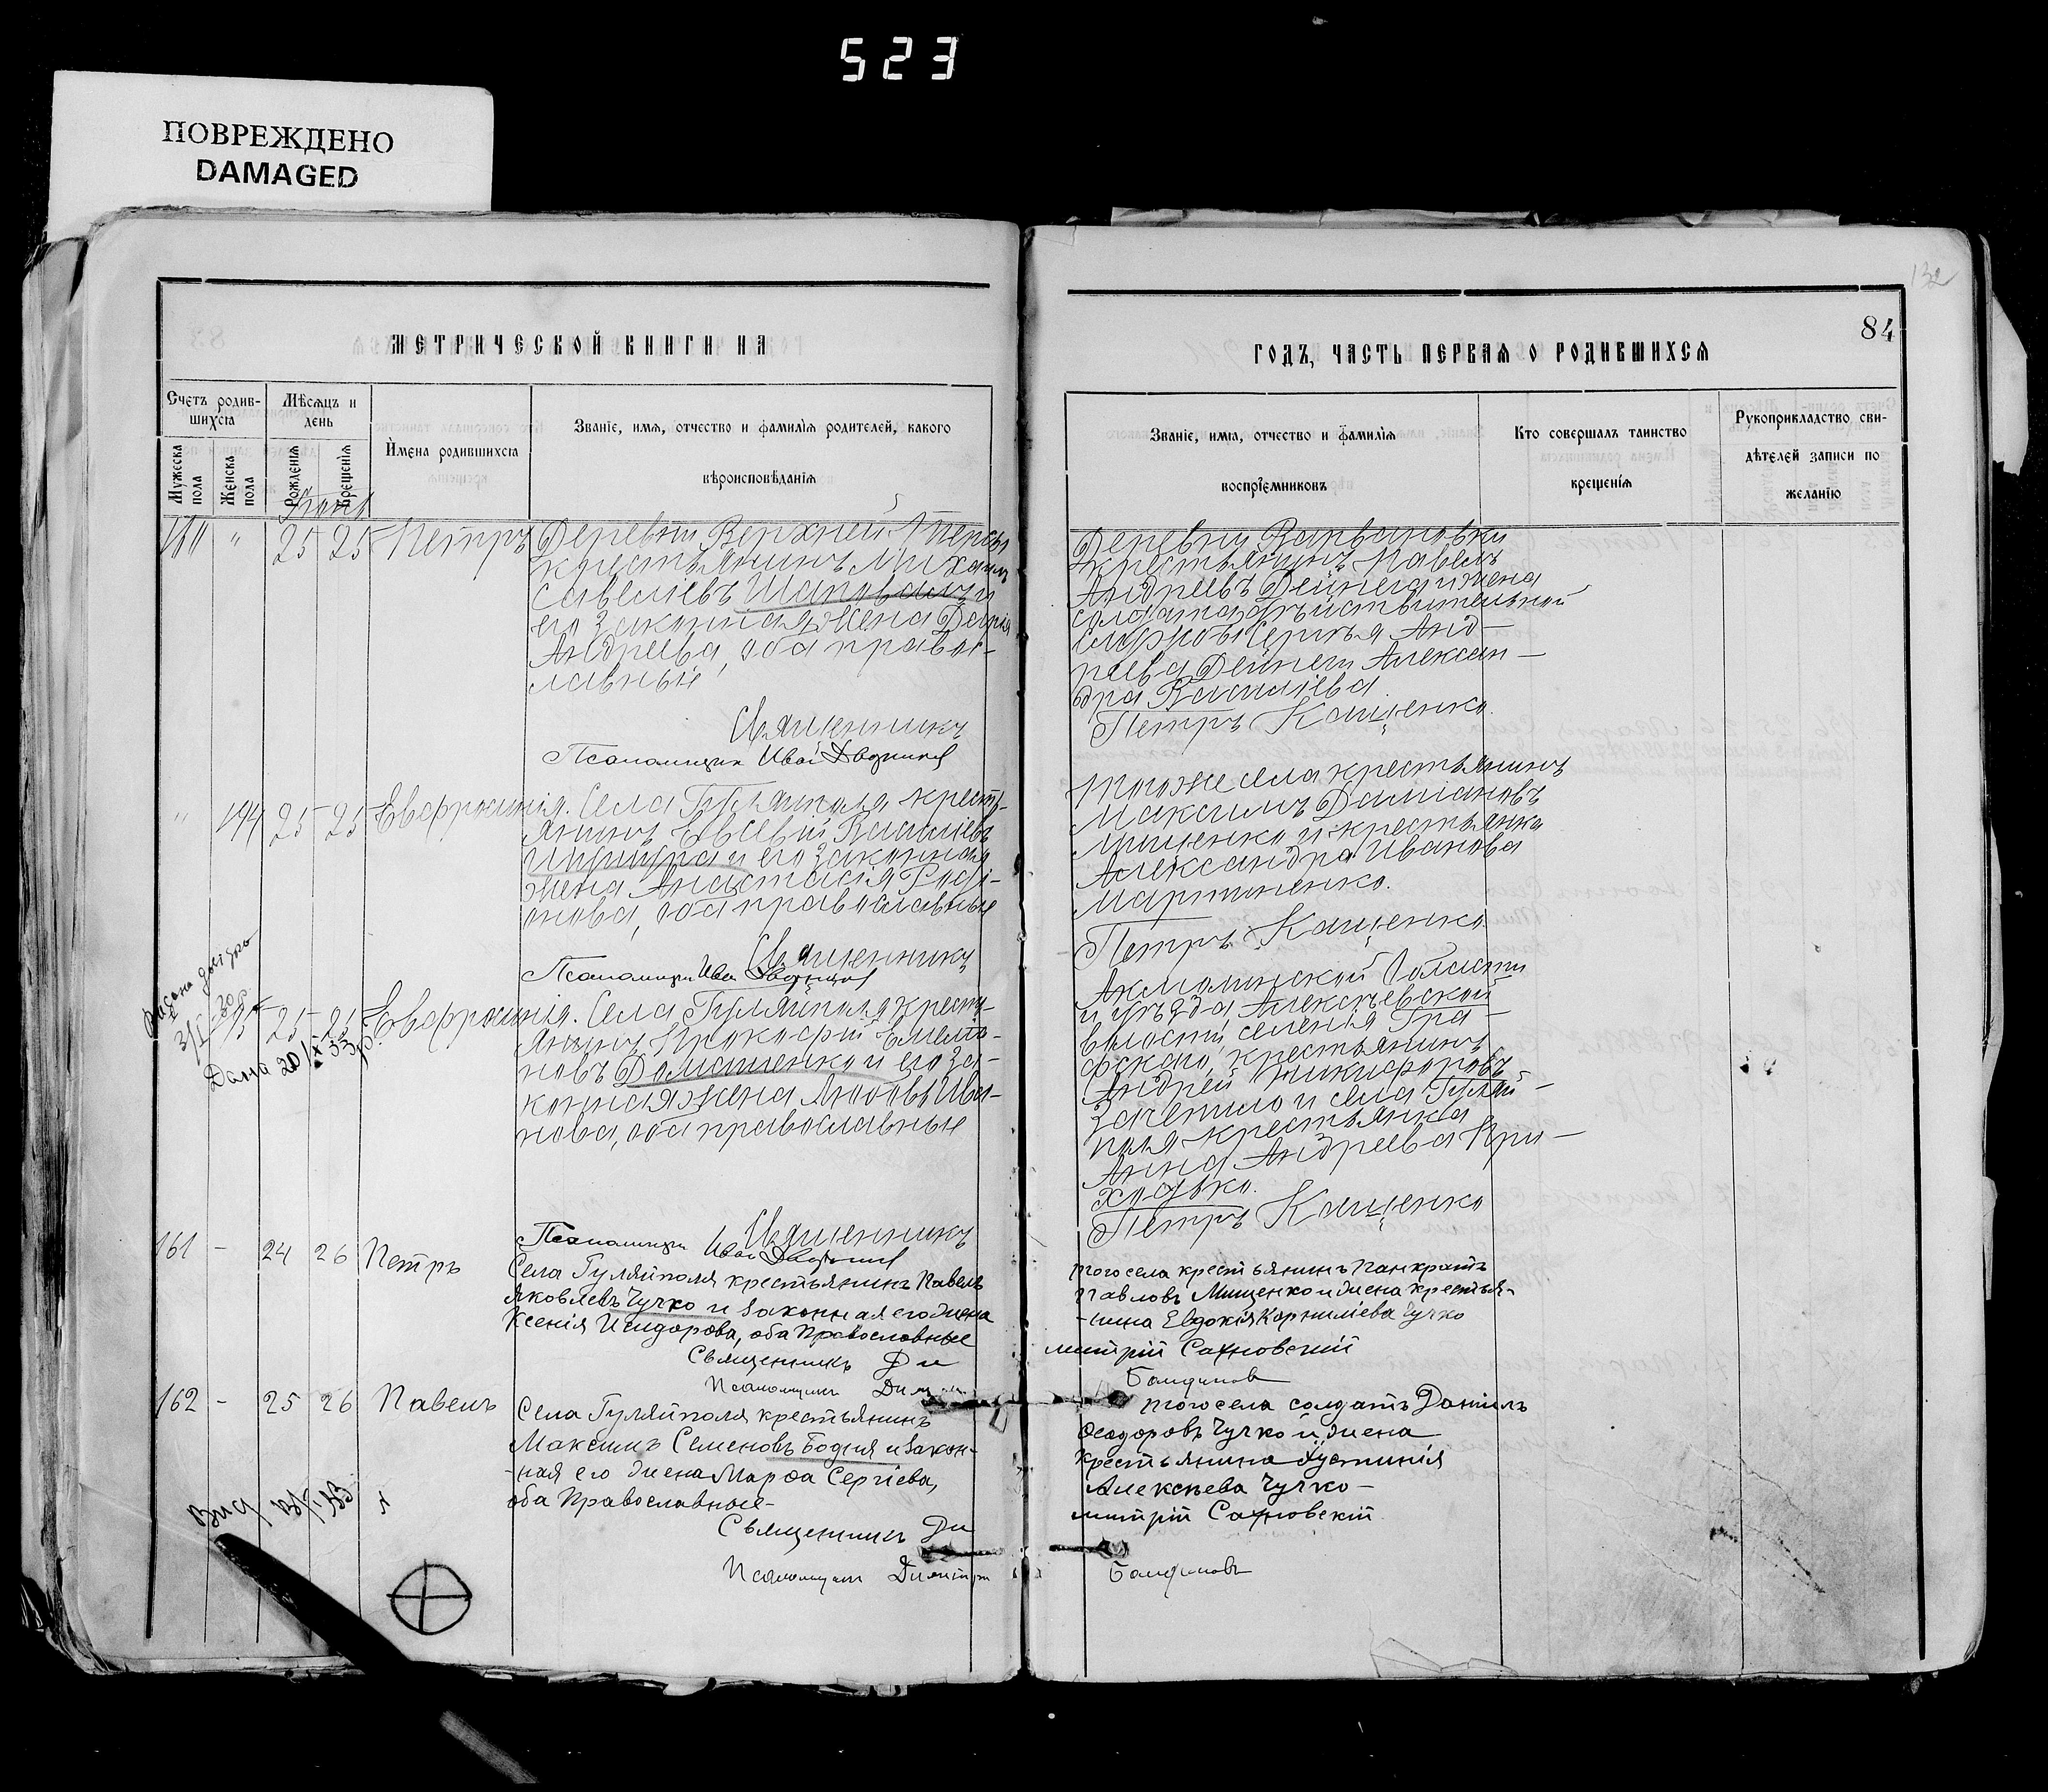 523
ПОВРЕЖДЕНО
DAMAGED
132
84
МЕТРИЧЕСКОЙ КНИГИ НА
ГОДЪ, ЧАСТЬ ПЕРВАЯ О РОДИВШИХСЯ
Счетъ родив-
шихсѧ
Мужеска пола
Женска пола
Мѣсяцъ и
день
Рожденія
Крещенія
Имена родившихсѧ
Званіе, имя, отчество и фамилія родителей, какого
вѣроисповѣданія
Званіе, имя, отчество и фамилія
воспріемниковъ
Кто совершалъ таинство
крещенія
Рукоприкладство сви-
дѣтелей записи по
желанію
160 " 25 25 Петръ
Деревни Верхней
крестьянинъ Михаилъ
Савеліевъ Шаповалъ и
его законная жена Дарія
Андреева, оба правос-
лавные
Священникъ
Псаломщик Иван Дворников
Деревни
крестьянинъ Павелъ
Андреевъ Дейнега и жена
солдата действительной
службы Сергѣя Анд-
реева Дейнеги Алексан-
дра Василіева.
Петръ Кащенко.
" 194 25 25 Евфросинія.
Села Гуляйполя кресть-
янинъ Евсевій Василіевъ
и его законная
жена Анастасія Роді-
онова, оба православные
Священникъ
Псаломщик Иван Дворников
Того же села крестьянинъ
Максимъ Даміановъ
Мищенко и крестьянка
Александра Иванова
Мартыненко.
Петръ Кащенко.
Дана 20/X 33 г.
25 25 Евфросинія.
Села Гуляйполя кресть-
янинъ Прокофій Емелья-
новъ Домашенко и его за-
конная жена Любовь Ива-
нова, оба православные
Священникъ
Псаломщик Иван Дворников
Акмолинской Области
и уѣзда Алексѣевской
волости селенія Гра-
фскаго, крестьянинъ
Андрей Никифоровъ
Зачепило и села Гуляй-
поля крестьянка
Анна Андреева При-
ходько.
Петръ Кащенко
161 - 24 26 Петръ
Села Гуляйполя крестьянинъ Павелъ
Яковлевъ Чучко и законная его жена
Ксенія Исидорова, оба Православные
Священникъ Ди
Псаломщикъ Дими
того села крестьянинъ Панкратъ
Павловъ Мищенко и жена крестья-
-нина Евдокія Корниліева Чучко
митрій Сахновскій
162 - 25 26 Павелъ
Села Гуляйполя крестьянинъ
Максимъ Семеновъ Бодня и закон-
-ная его жена Марфа Сергіева,
оба Православные-
Священникъ Ди
Псаломщикъ Димитр
того села солдатъ Даніилъ
Феодоровъ Чучко и жена
крестьянина Іустинія
Алексѣева Чучко-
митрій Сахновскій